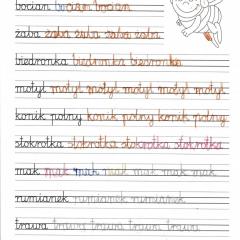 bocian bocian bocian
żaba żaba żuba żaba żaba
biedronka biedronka biedronka
motyl motyl motyl motyl motyl motyl
konik polny konik polny konik polny
stokrotka stokrotka stokrotka stokrotka
mak mak mak mak mak mak mak
rumianek rumianek rumianek
trawa trawa trawa trawa trawa